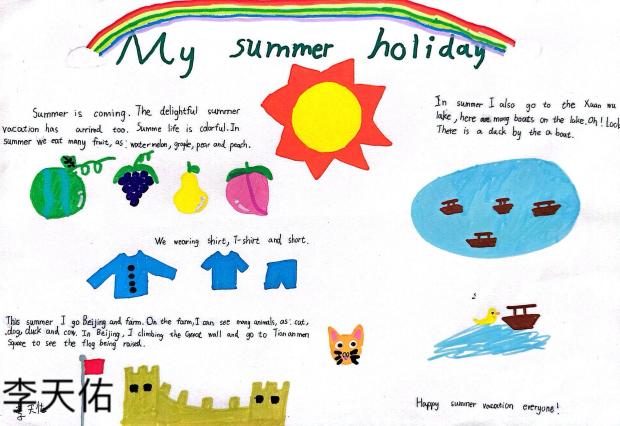 My summer holiday
Summer is coming. The delightful summer
vacation has arrived too. Summe life is colorful. In
summer we eat many fruit, as: watermelon, grape, pear and peach.
We wearing shirt, T-shirt and short.
This summer I go Beijing and farm. On the farm, I can see many animals, as: cat,
dog, duck and cow. In Beijing, I climbing the Great wall and go to Tian anmen
Square to see the flag being raised.
李天佑
李天佑
In summer I also go to the Xuan wu
lake, here are many boats on the lake. Oh! Look
There is a duck by the a boat.
2
Happy summer vacation everyone!